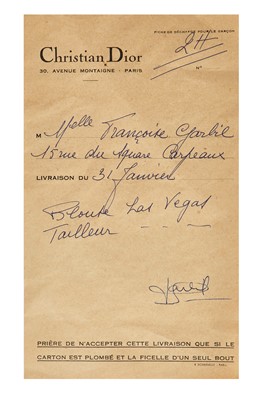 FICHE DE DÉCHARGE POUR LE GARÇON
2H
N°
Christian Dior
30, AVENUE MONTAIGNE - PARIS
M elle Françoise
15 rue du Square Carpeaux
LIVRAISON DU 31 Janvier
Blouse Las Vegas
Tailleur - - -
PRIÈRE DE N'ACCEPTER CETTE LIVRAISON QUE SI LE
CARTON EST PLOMBÉ ET LA FICELLE D'UN SEUL BOUT